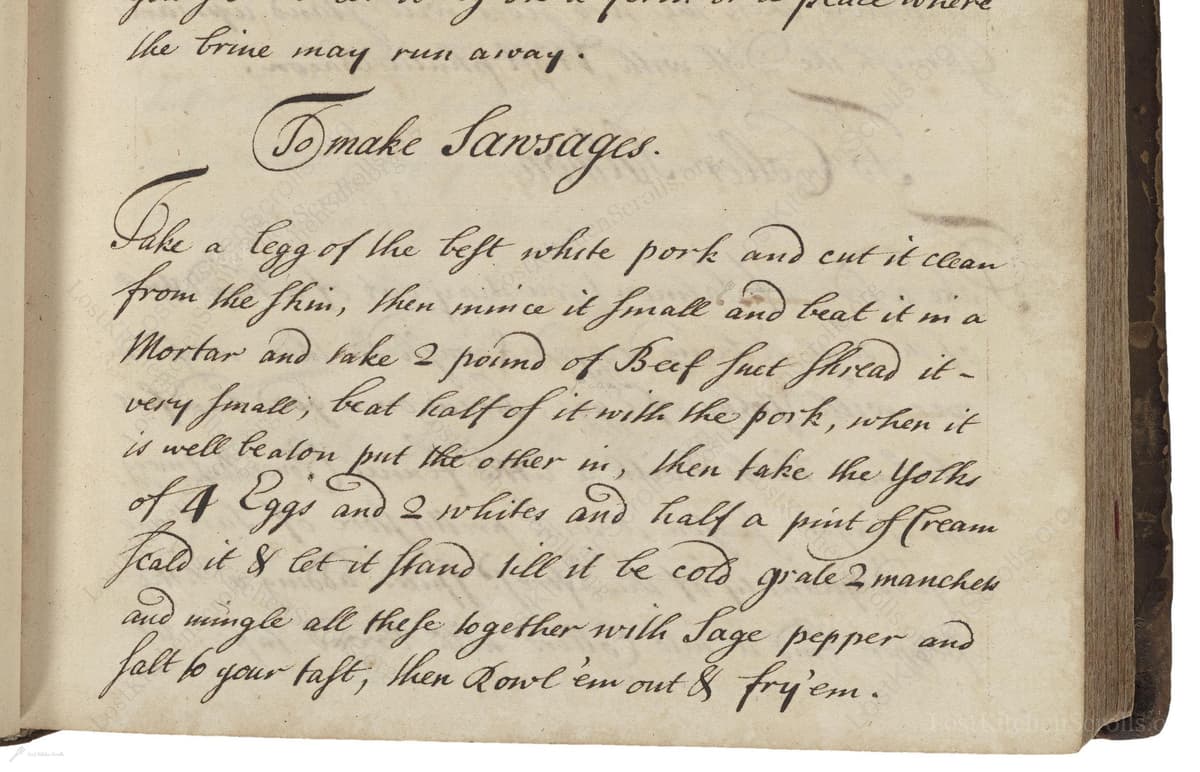 a place where
the brine may run away.
To make Sawsages.
Take a legg of the best white pork and cut it clean
from the skin, then mince it small and beat it in a
Mortar and take 2 pound of Beef suet shread it -
very small; beat half of it with the pork, when it
is well beaton put the other in, then take the Yolks
of 4 Eggs and 2 whites and half a pint of Cream
scald it & let it stand till it be cold grate 2 manchets
and mingle all these together with Sage pepper and
salt to your tast, then Rowl 'em out & fry 'em.
LostKitchenScrolls.o